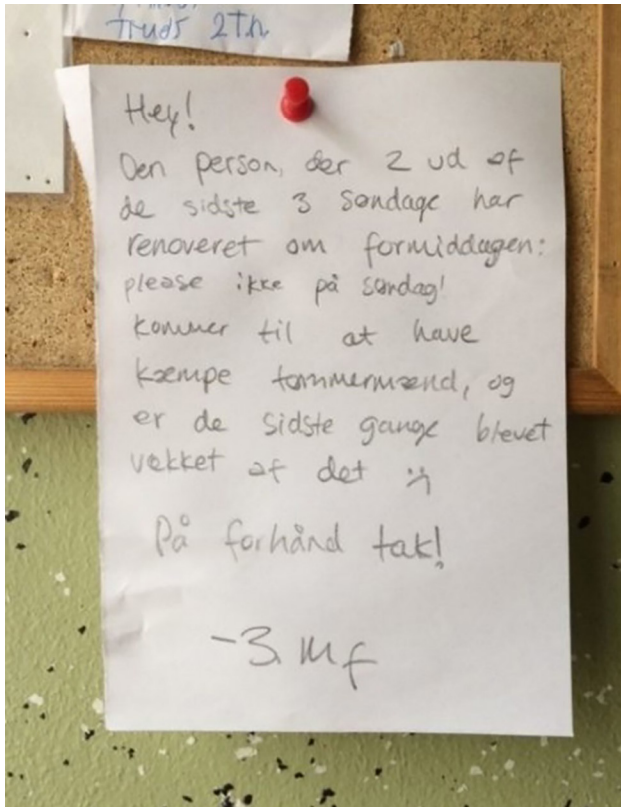 Truds 2Th
Hey!
Den person, der 2 ud af
de sidste 3 søndage har
renoveret om formiddagen:
please ikke på søndag!
Kommer til at have
kæmpe tømmermænd, og
er de sidste gange blevet
vækket af det :(
På forhånd tak!
-3. mf